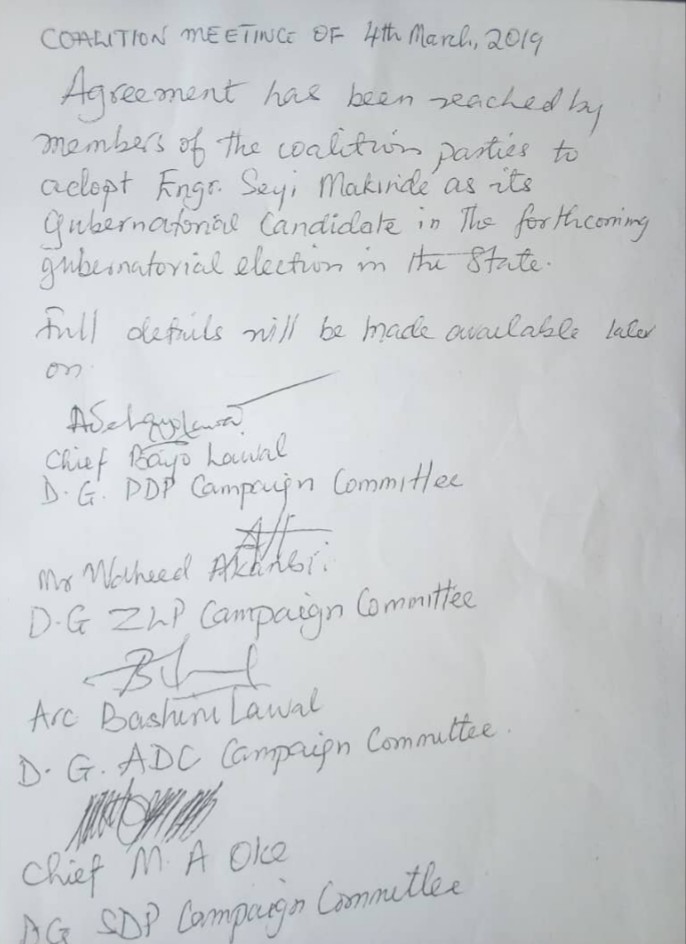 COALITION MEETINGE OF 4th March, 2019
Agreement has been reached by
members of the coalition parties to
adopt Engr. Seyi Makinde as its
gubernatorial Candidate in The forthcoming
gubernatorial election in the State.
Full details will be made available later
on.
Chief Bayo Lawal
D.G. PDP Campaign Committee
Mr Waheed Akanbi.
D.G ZLP Campaign Committee
Arc Bashiru Lawal
D.G. ADC Campaign Committee.
Chief M. A Oke
DG SDP Campaign Committee